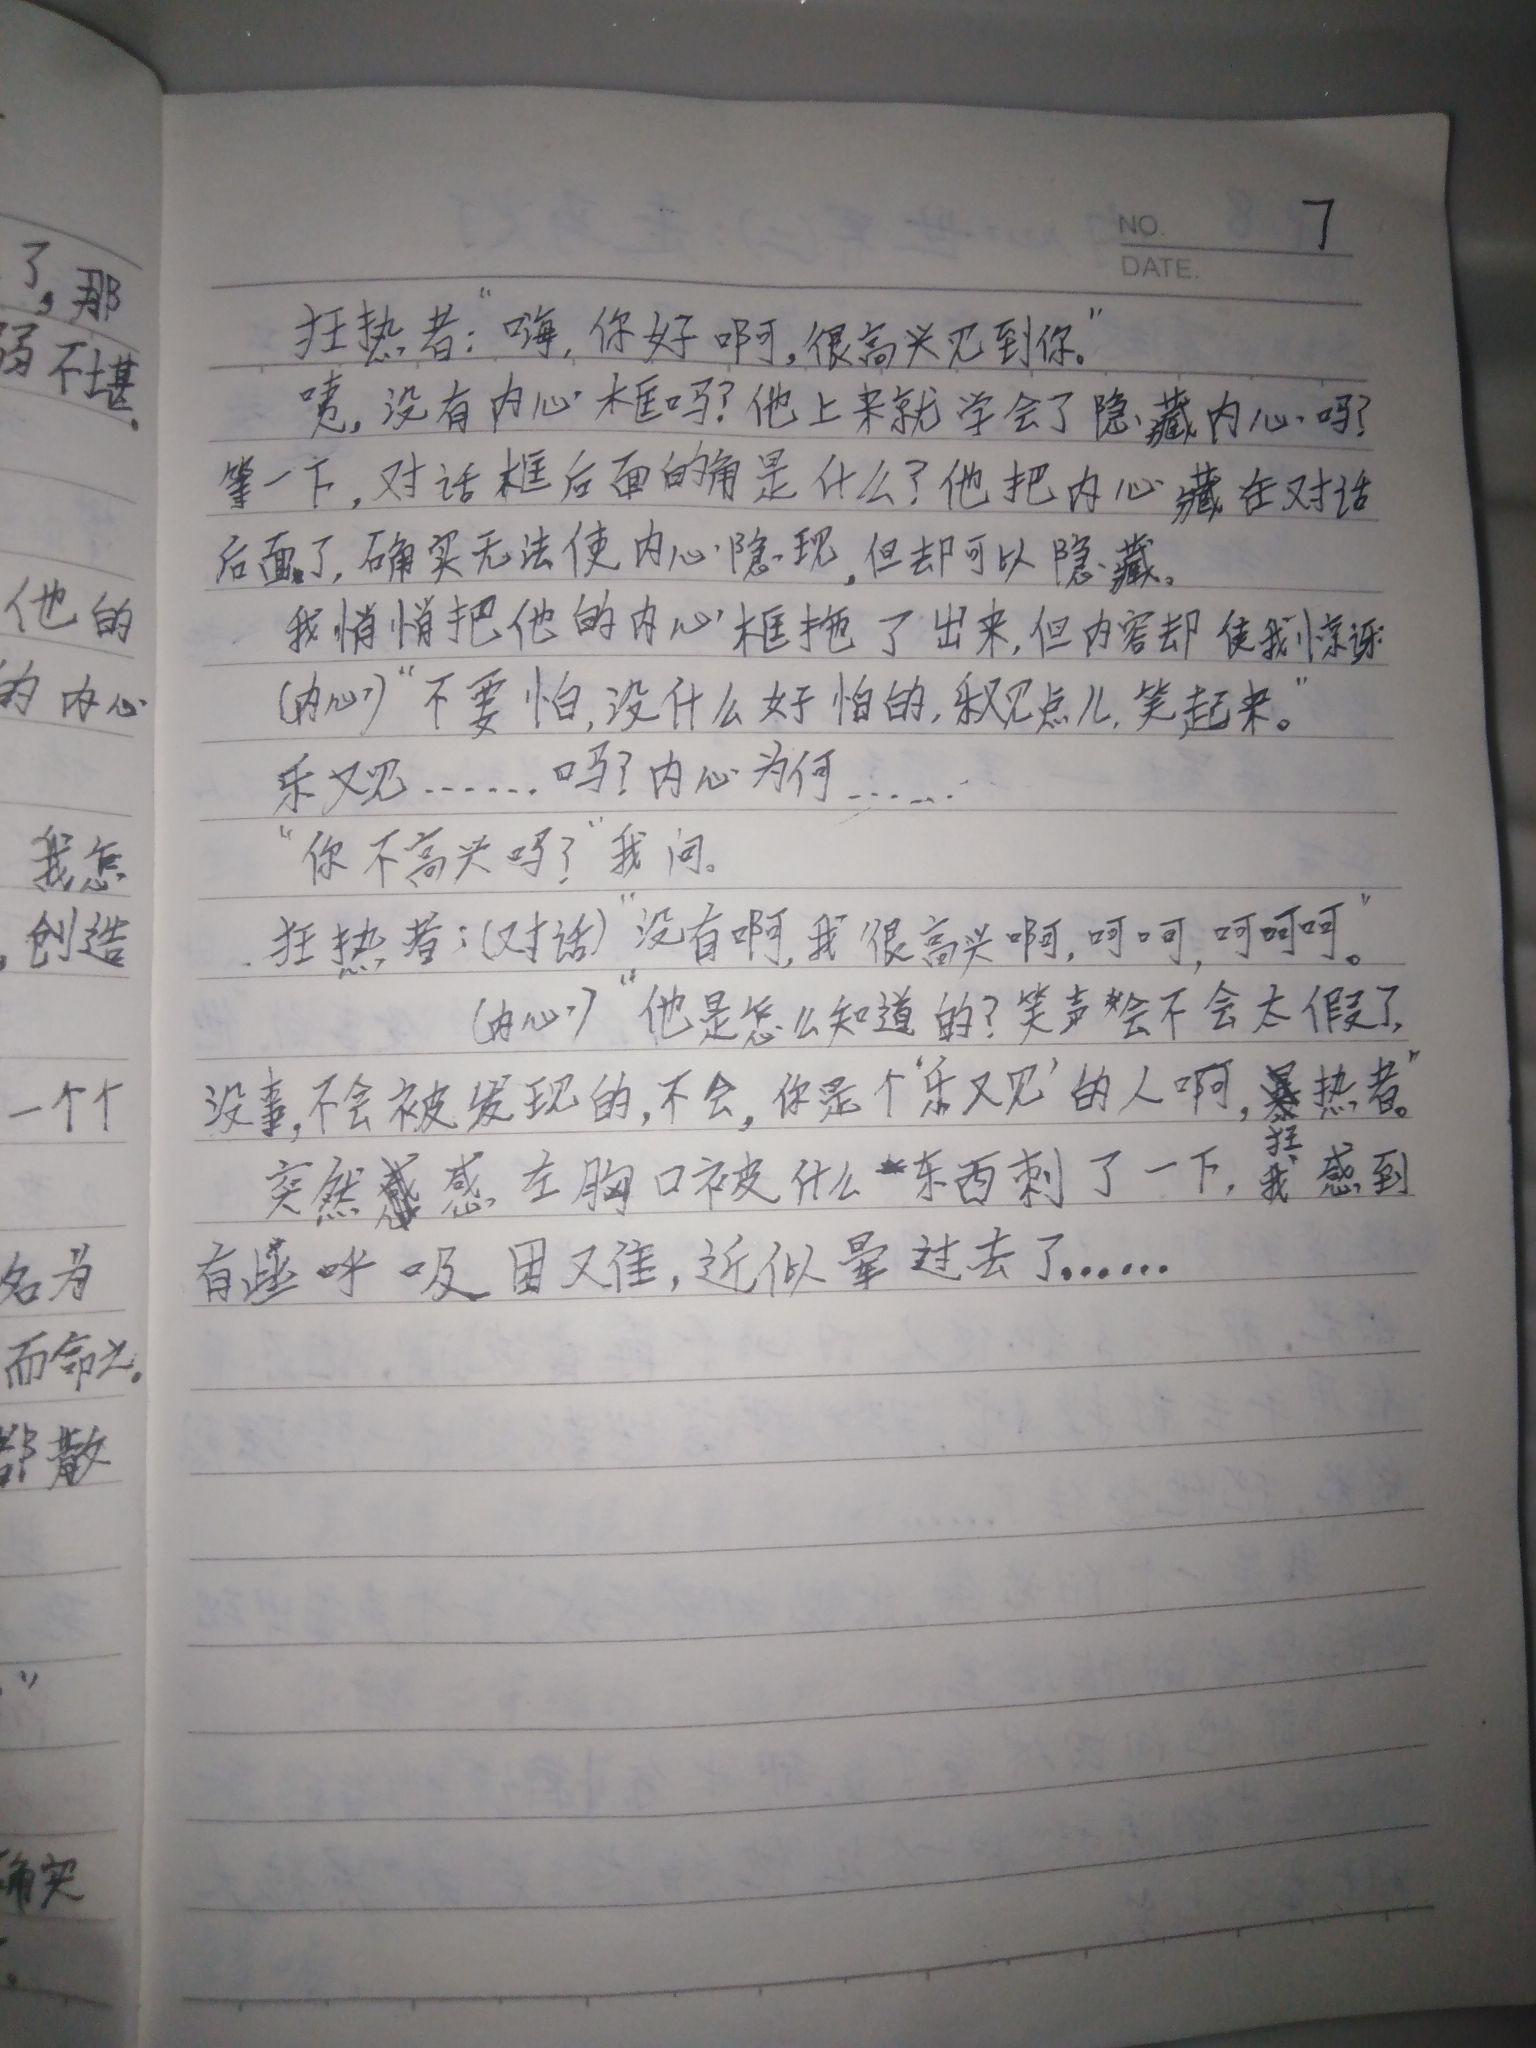 了,那
弱不堪.
他的
的内心
我怎
,创造
一个个
名为
而命名.
都散
”
确实
NO. 7
DATE.
狂热者:“嗨,你好啊,很高兴见到你。”
咦,没有内心框吗?他上来就学会了隐藏内心吗?
等一下,对话框后面的角是什么?他把内心藏在对话
后面了,确实无法使内心隐现,但却可以隐藏。
我悄悄把他的内心框拖了出来,但内容却使我惊讶
(内心)“不要怕,没什么好怕的,乐观点儿,笑起来。”
乐又见......吗?内心为何......
“你不高兴吗?”我问。
狂热者:(对话)“没有啊,我很高兴啊,呵呵,呵呵呵。”
(内心)“他是怎么知道的?笑声会不会太假了,
没事,不会被发现的,不会,你是个‘乐又见’的人啊,狂热者。”
突然感左胸口被什么东西刺了一下,我感到
有些呼吸困又隹,近似晕过去了......